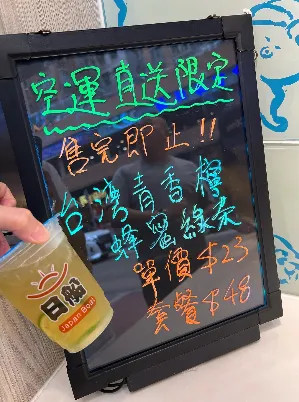 空運直送限定
售完即止!!
台灣青香檸
蜂蜜綠茶
單價$23
套餐$48
日船
Japan Boat